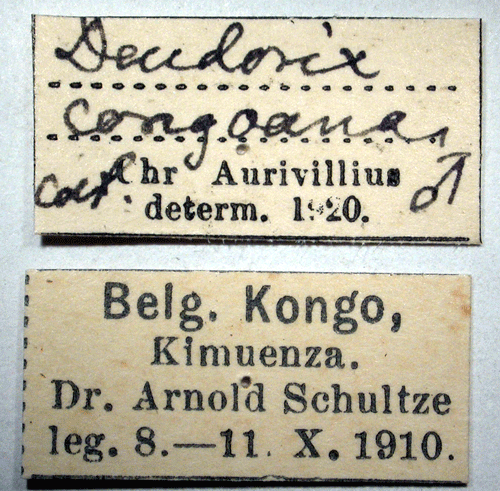 Deudorix
congoana,
Chr Aurivillius ♂
determ. 1920.
Belg. Kongo,
Kimuenza.
Dr. Arnold Schultze
leg. 8.—11. X. 1910.